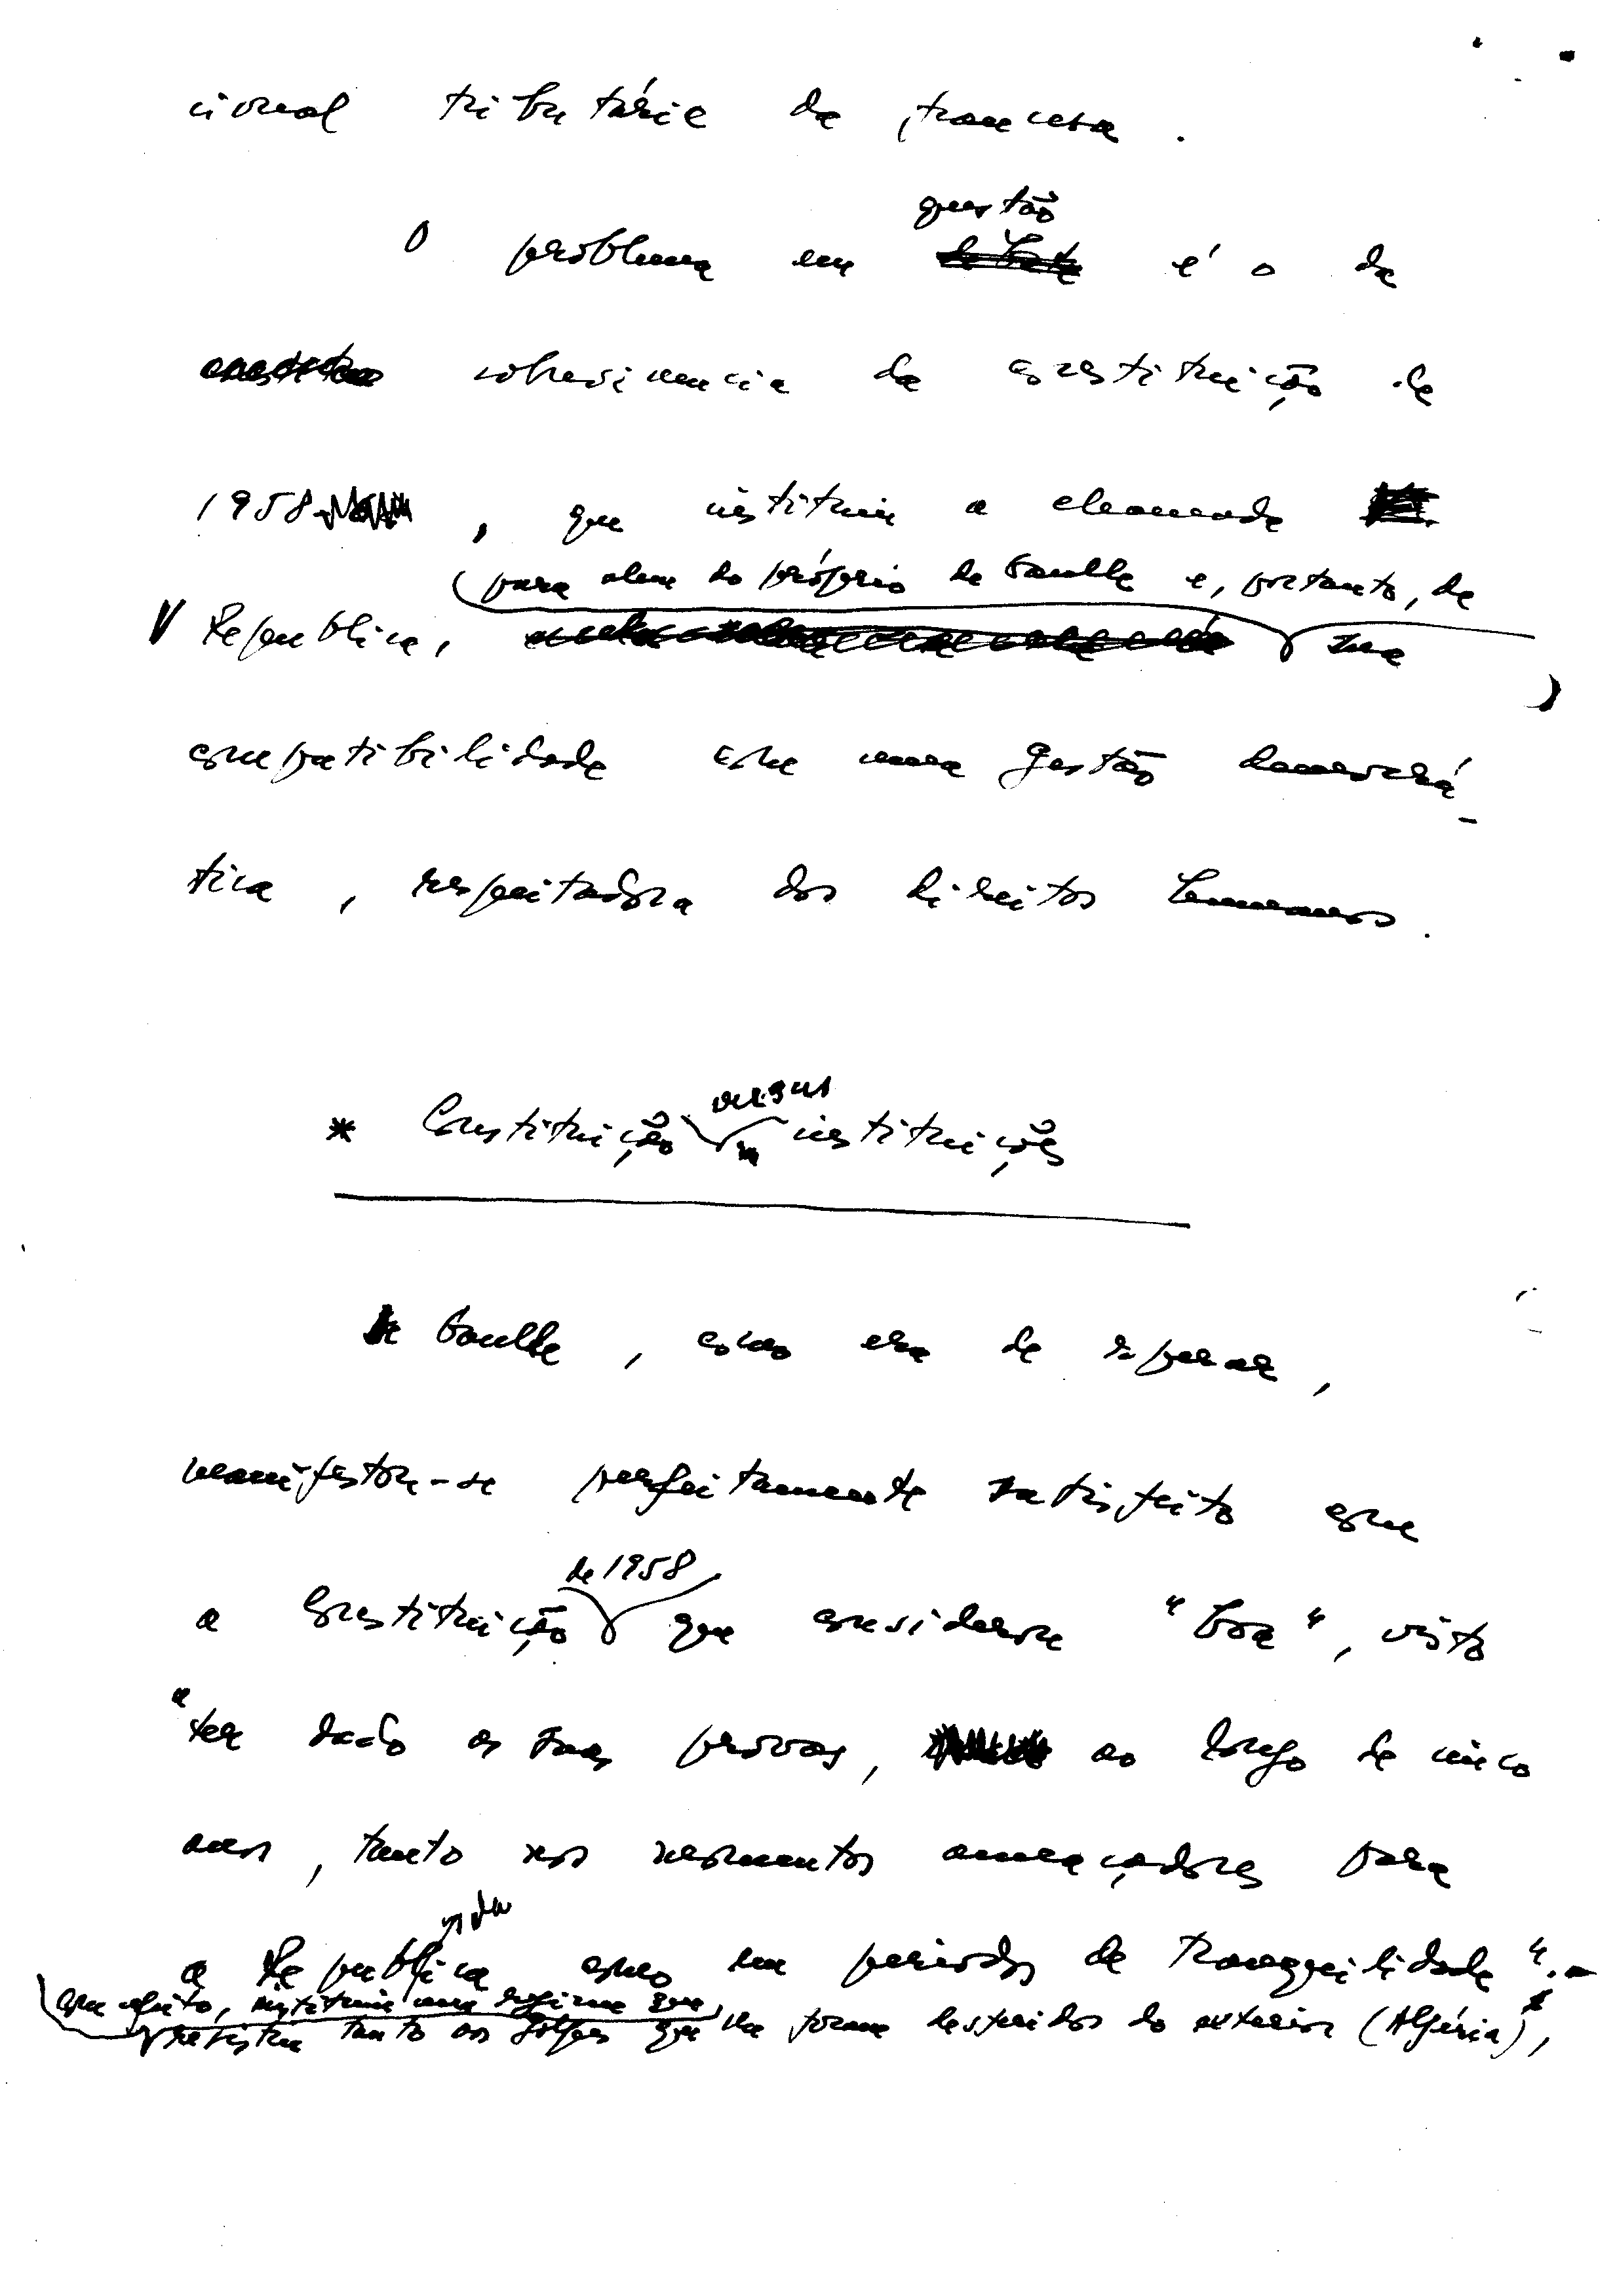 cional tributária da francesa.
questão
O problema em debate é o da
sobrevivencia da constituição de
1958, que instituiu a chamada
para alem do próprio de Gaulle e, portanto, da
V Republica, sua
compatibilidade com uma gestão democrá-
tica, respeitadora dos direitos humanos.
versus
* Constituição instituições
de Gaulle, como era de esperar,
manifestou-se perfeitamente satisfeito com
de 1958
a Constituição que considerou "boa", visto
"ter dado as suas provas, ao longo de cinco
anos, tanto nos momentos ameaçadores para
a Republica como em periodos de tranquilidade".
com efeito, instituiu um regime que
resistiu tanto aos golpes que lhe foram desferidos do exterior (Algéria),